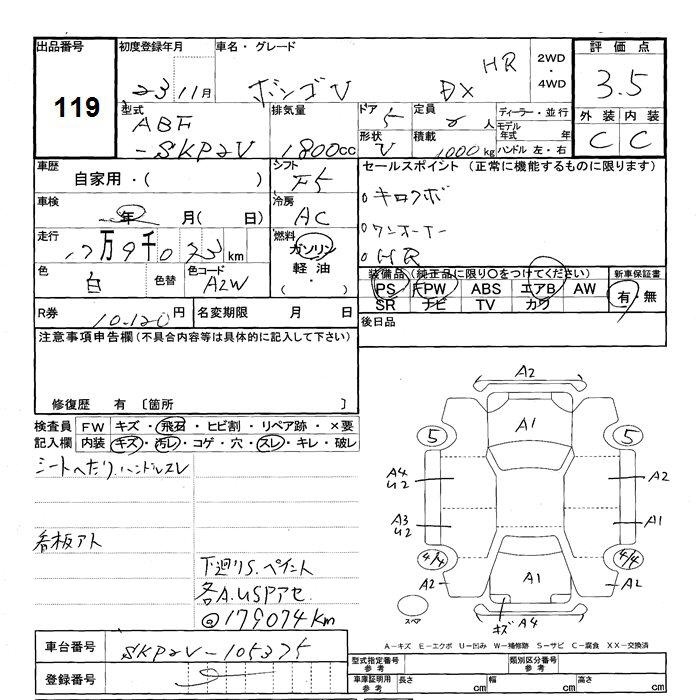 出品番号 初度登録年月 車名・グレード 評価点
119
23 11月 ボンゴV DX HR 2WD・4WD 3.5
型式 排気量 ドア 5 定員 2人 ディーラー・並行 外装 内装
ABF-SKP2V 1800cc 形状 V 積載 1000kg モデル年式 年 C C
ハンドル 左・右
車歴 シフト セールスポイント (正常に機能するものに限ります)
自家用・( ) F5
車検 冷房 キロクボ
年 月( 日) AC ワンオーナー
走行 燃料 HR
万 千 km ガソリン
軽油
( ・ )
色 色替 色コード
白 A2W
装備品(純正品に限り○をつけてください) 新車保証書
PS PW ABS エアB AW 有・無
SR ナビ TV カワ
R券 10.120円 名変期限 月 日
後日品
注意事項申告欄(不具合内容等は具体的に記入して下さい)
修復歴 有 〔箇所 〕
検査員記入欄 FW キズ・飛石・ヒビ割・リペア跡・×要
内装 キズ・汚レ・コゲ・穴・スレ・キレ・破レ
シートへたり.ハンドルスレ
看板アト
下廻りS.ペイント
各A.USPアセ.
@179074km
A2
A1
5 5
A4 U2 A2
A3 U2 A1
4/4 4/4
A2 A1 A2
スペア キズ A4
A−キズ E−エクボ U−凹み W−補修跡 S−サビ C−腐食 XX−交換済
車台番号 SKP2V-105375
登録番号
型式指定番号 参考 類別区分番号 参考
車庫証明用 参考 長さ cm 幅 cm 高さ cm